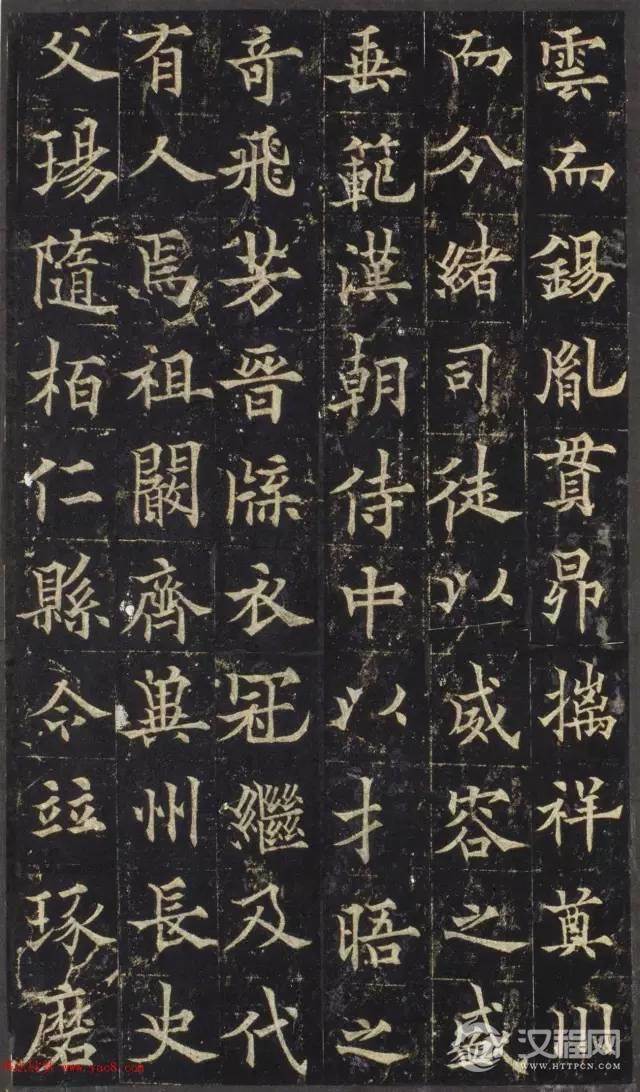 雲而錫胤貫昴摛祥奠川
而分緒司徒以威容之盛
垂範漢朝侍中以才晤之
奇飛芳晉牒衣冠繼及代
有人焉祖闕齊兾州長史
父瑒隨栢仁縣令竝琢磨
汉程网
WWW.HTTPCN.COM
www.yac8.com